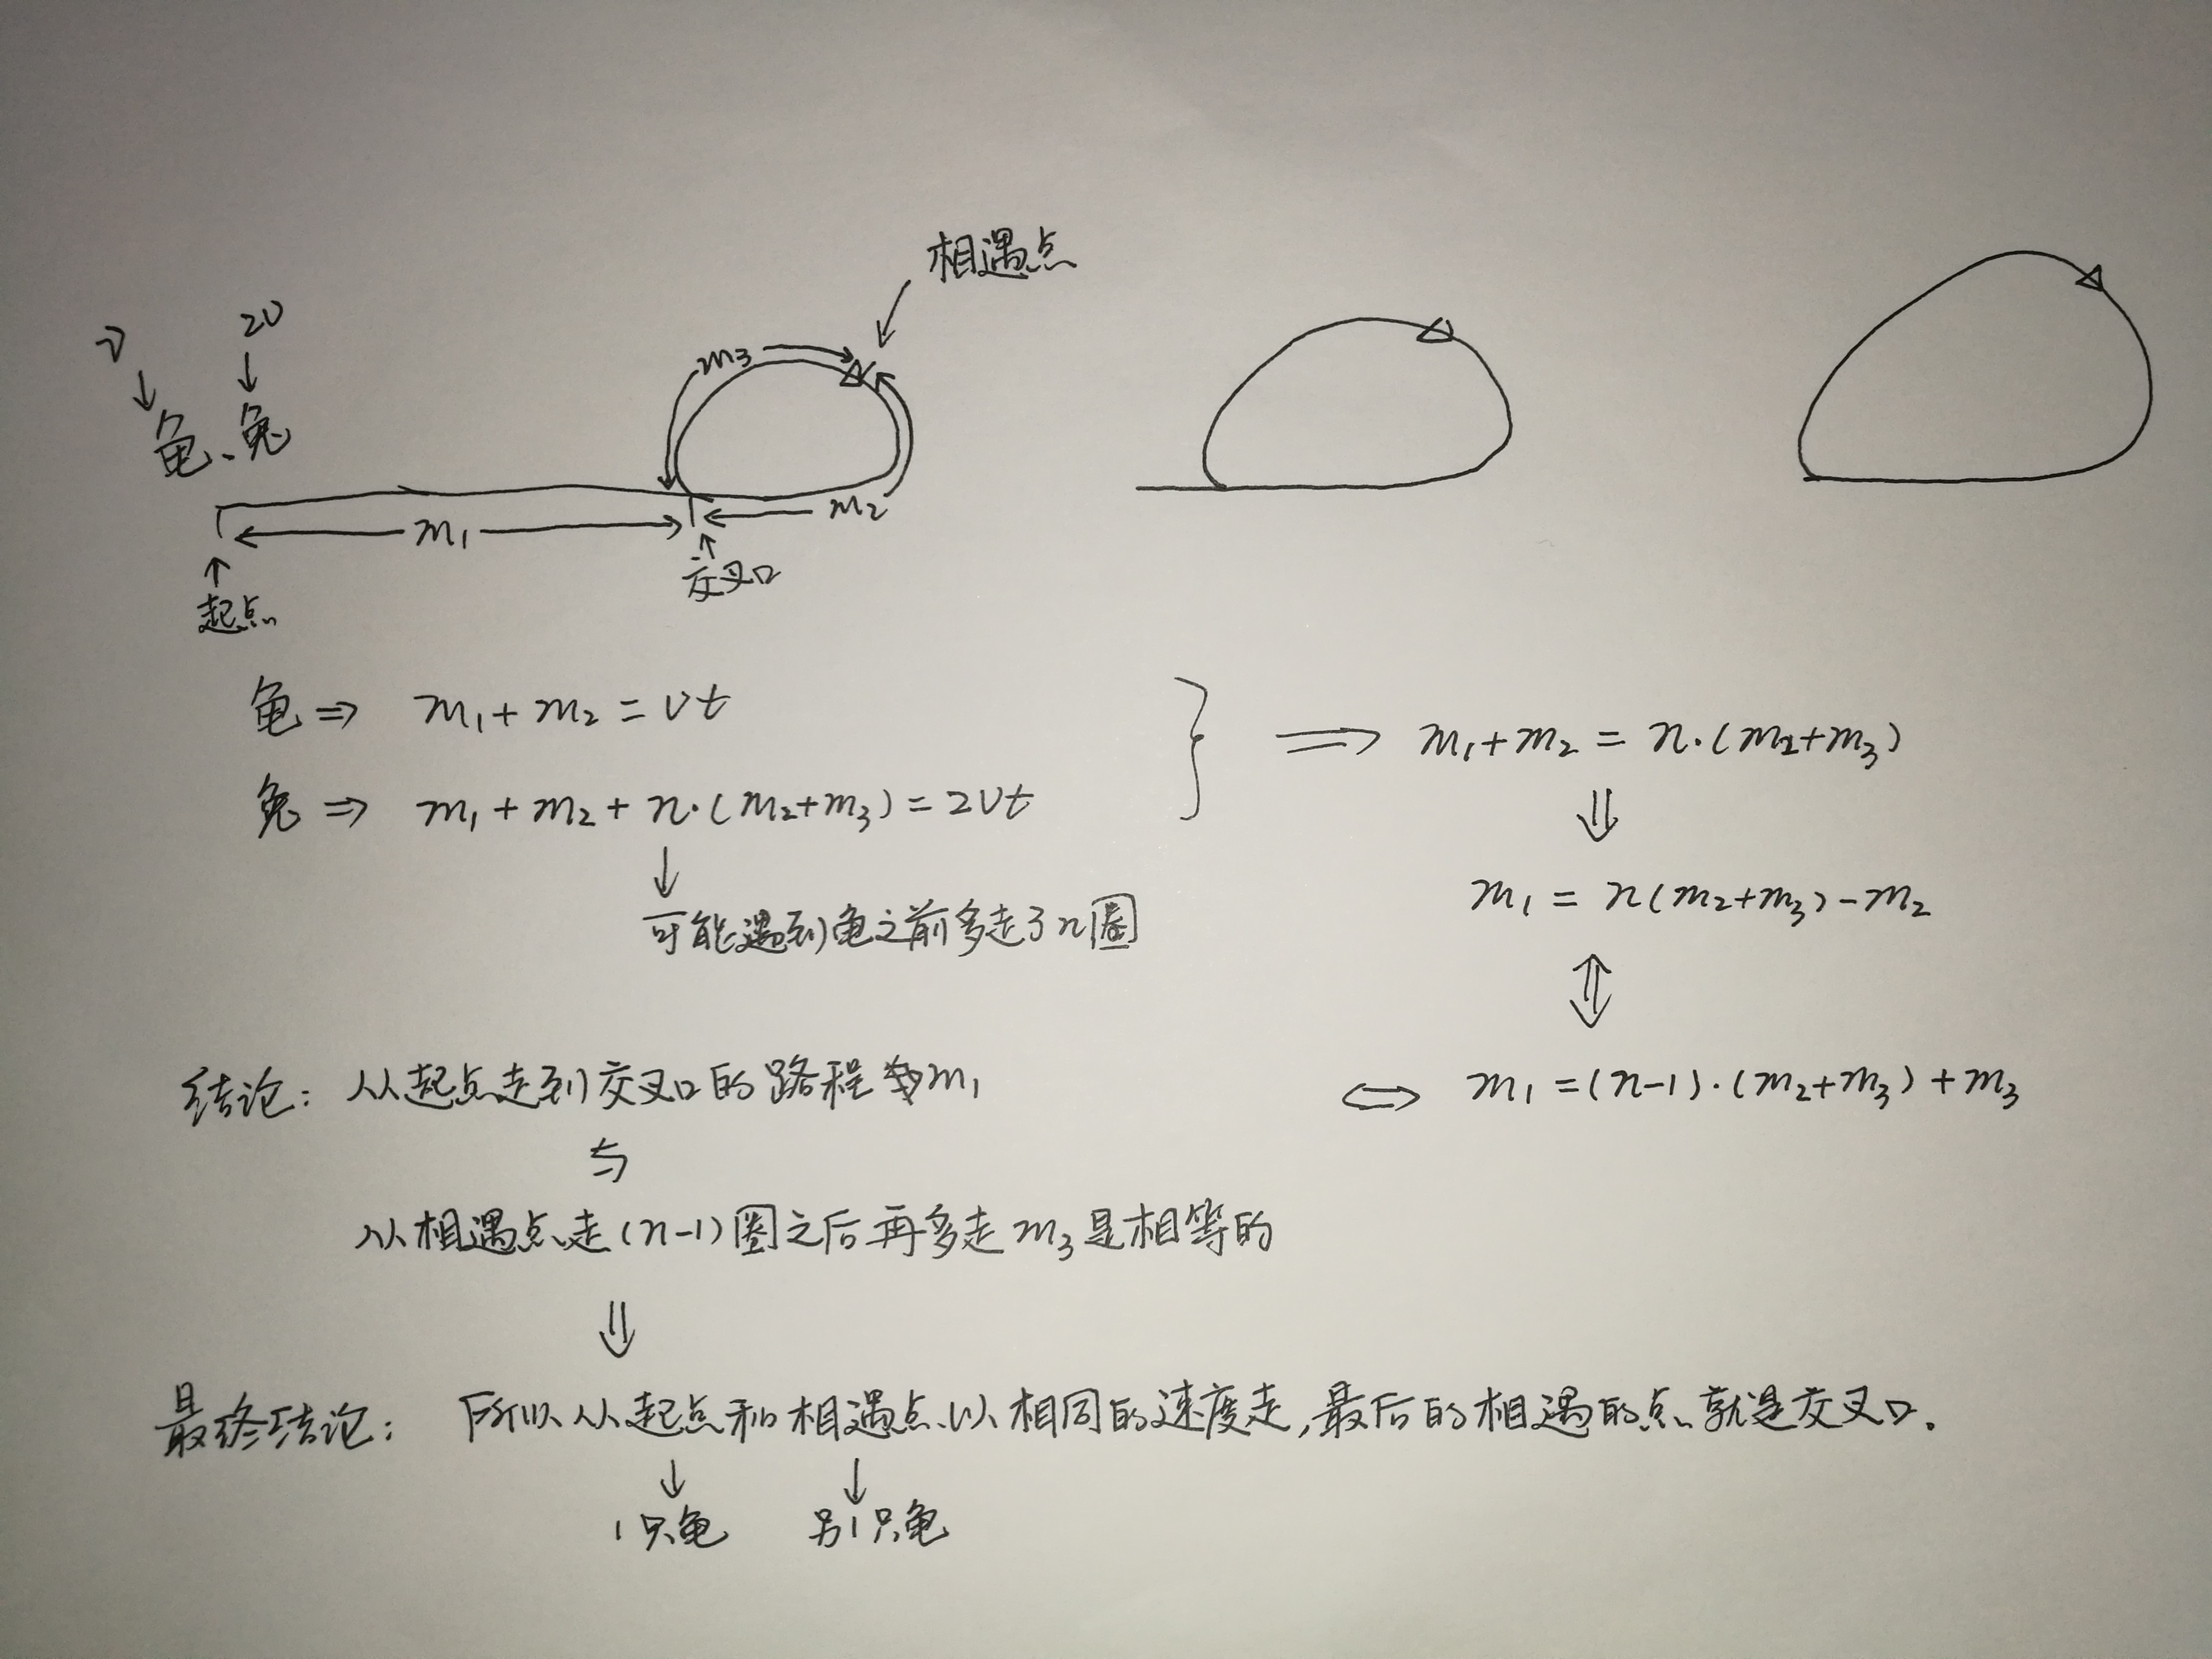 相遇点
v 2v
龟、兔
m3
m1 m2
交叉口
起点
龟 ⇒ m1 + m2 = vt
兔 ⇒ m1 + m2 + n·(m2+m3) = 2vt
⇒ m1+m2 = n·(m2+m3)
可能遇到龟之前多走了n圈
m1 = n(m2+m3)-m2
⇔ m1 = (n-1)·(m2+m3)+m3
结论: 从起点走到交叉口的路程 m1
与
从相遇点走(n-1)圈之后再多走m3是相等的
最终结论: 所以从起点和相遇点以相同的速度走,最后的相遇的点就是交叉口.
1只龟 另1只龟